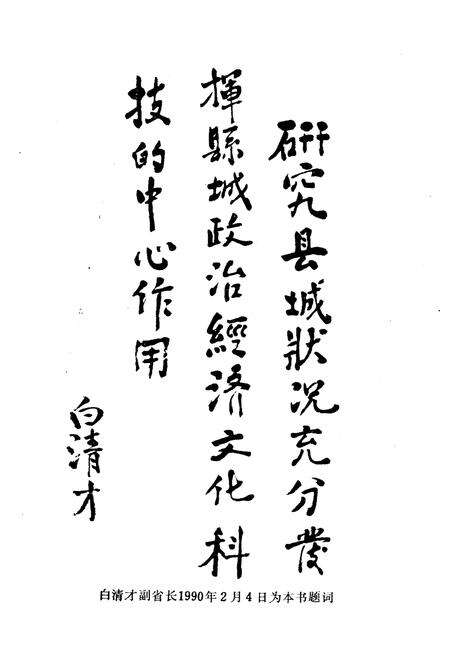 研究县城狀况充分發
揮縣城政治經济文化科
技的中心作用
白清才
白清才副省长1990年2月4日为本书题词